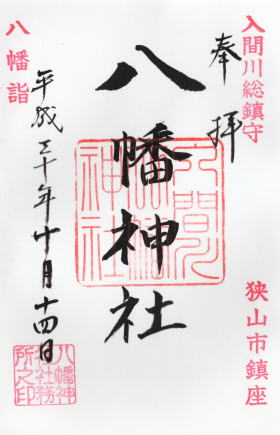 入間川総鎮守
奉拝
狭山市鎮座
八幡神社
入間川
八幡神社
八幡詣
平成三十年十月十四日
八幡神
社社務
所之印